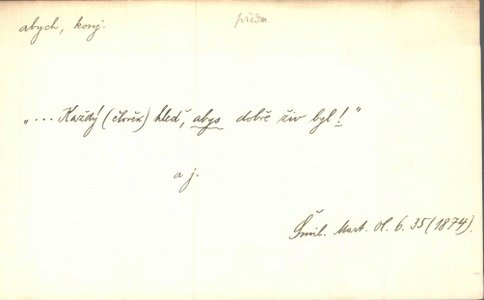 abych, konj.
„... Každý (člověk) hleď, abys dobře živ byl!"
a j.
Šmil. Mart. Ol. 6. 35 (1874).